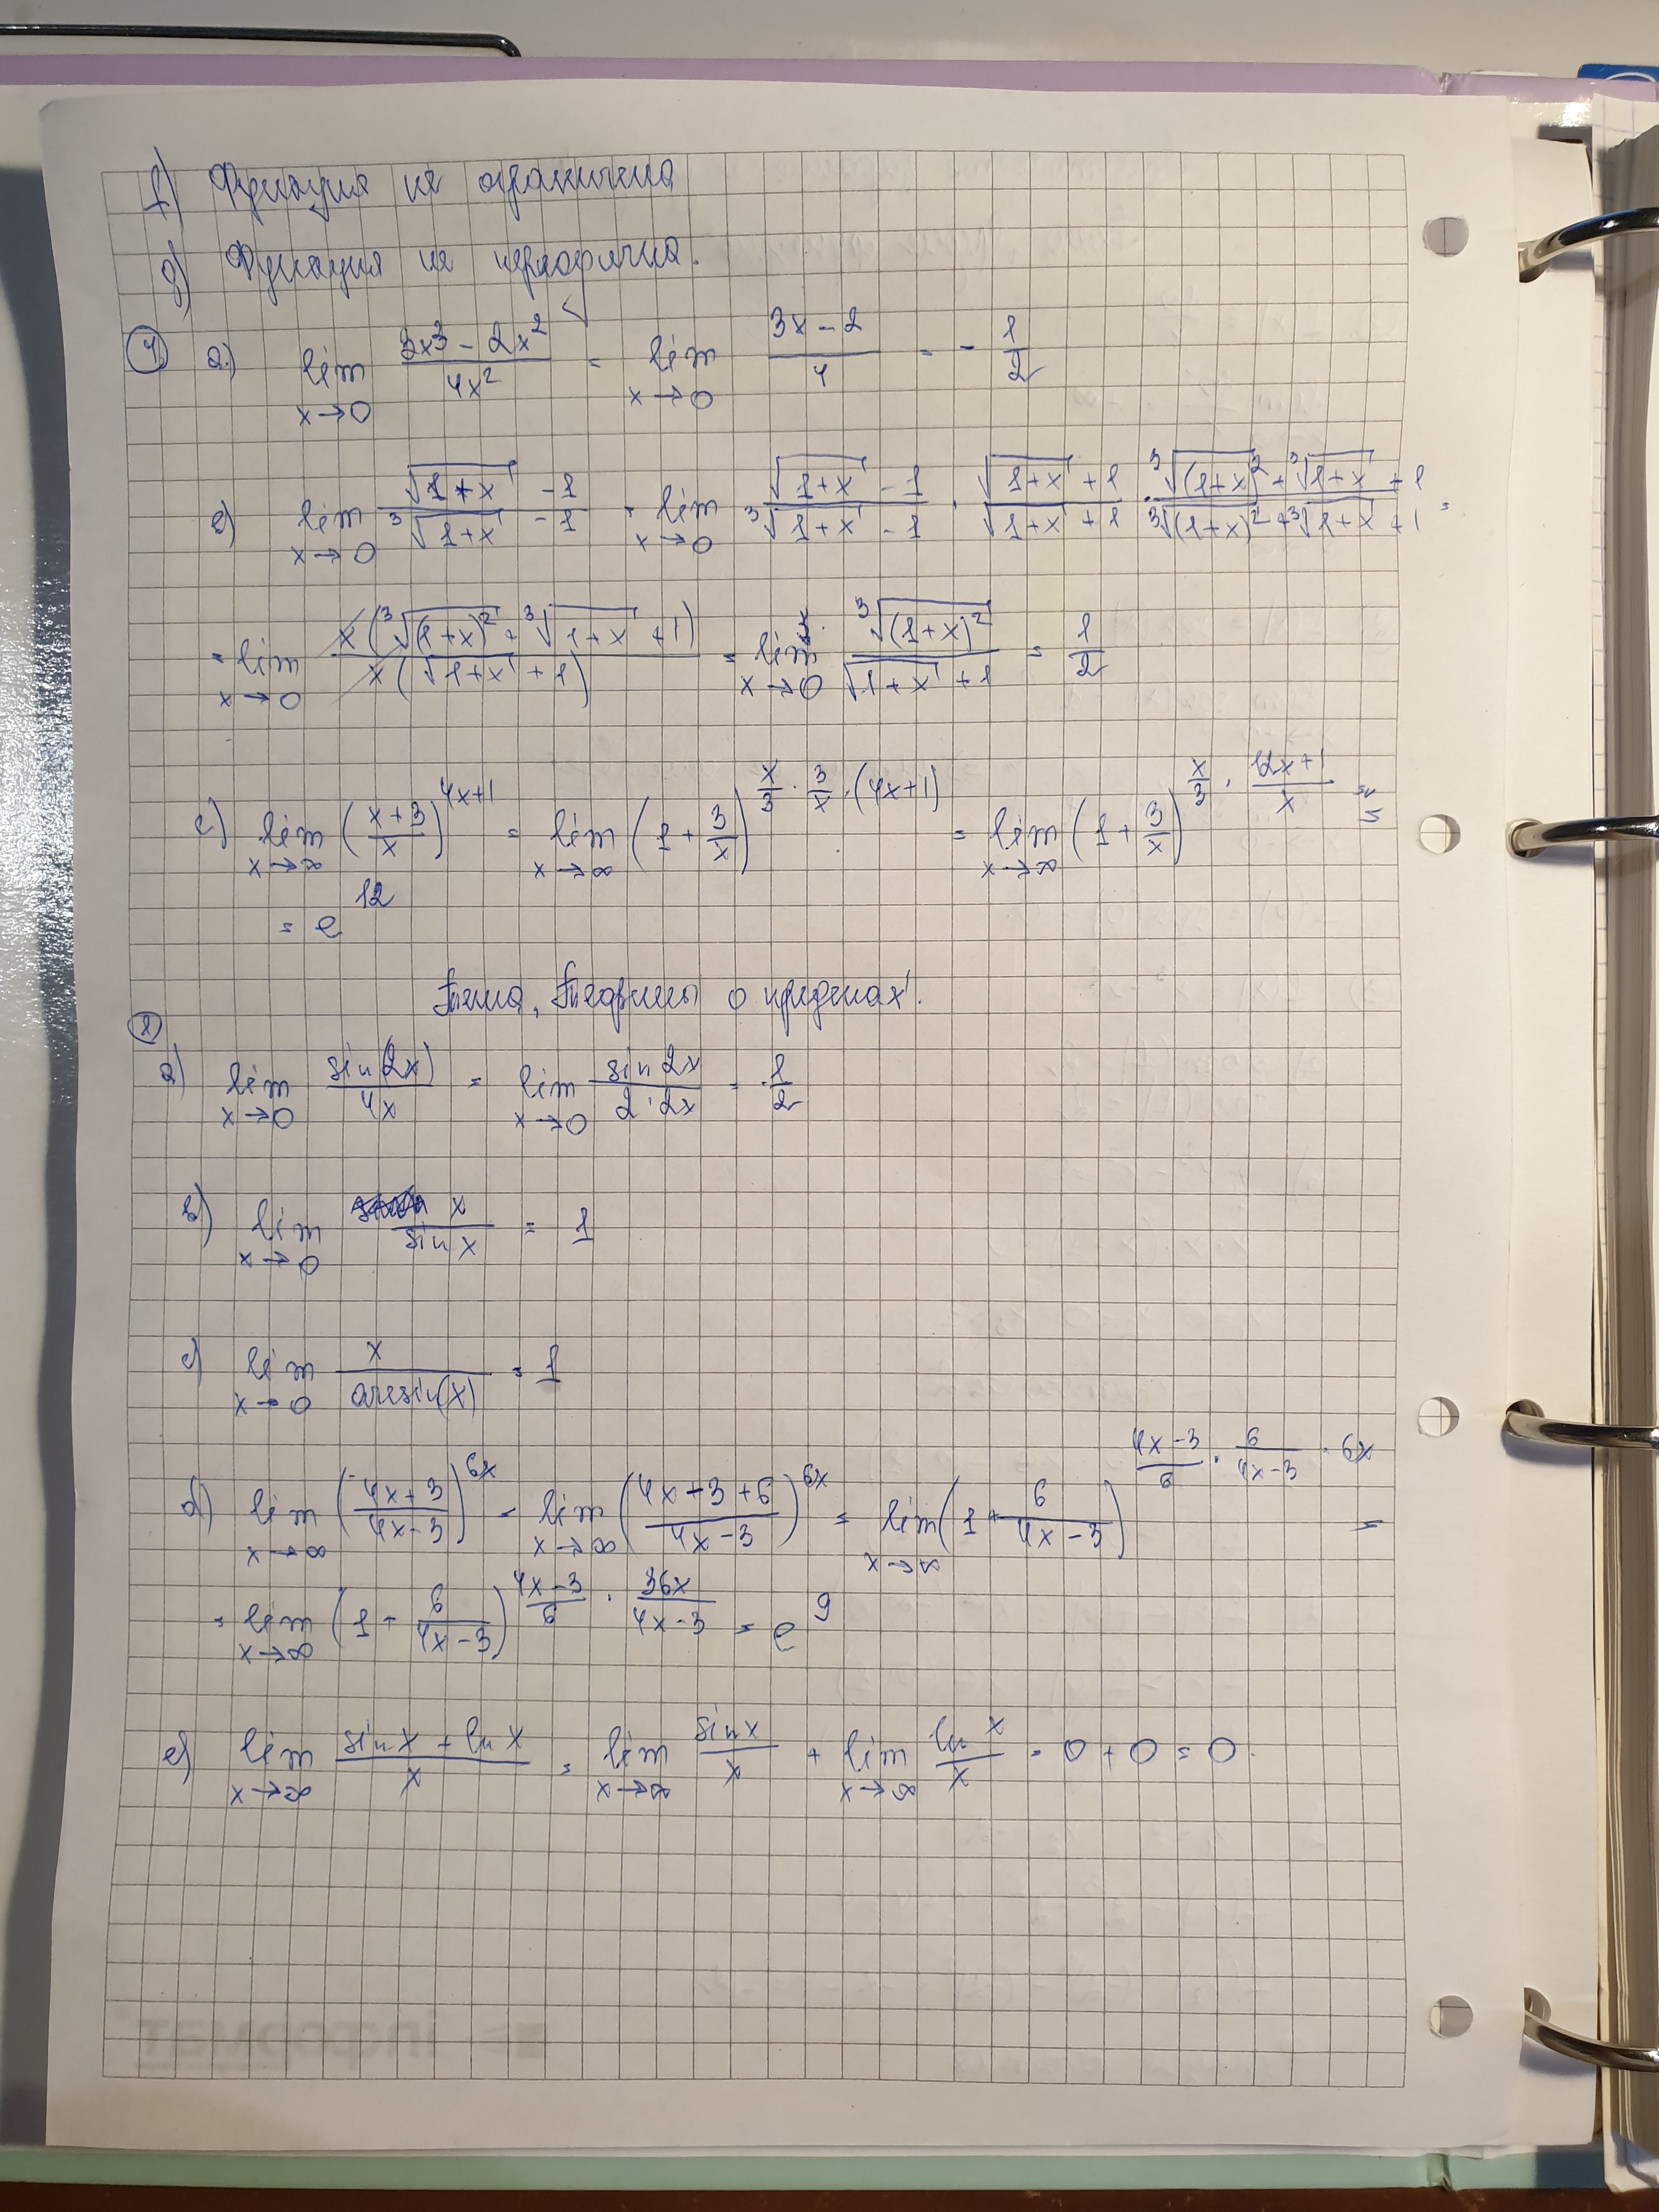 f) Функция не ограничена
g) Функция не периодична.
④ a.) lim x→0 (3x³ - 2x²)/(4x²) = lim x→0 (3x - 2)/4 = - 1/2
в) lim x→0 (√(1+x) - 1)/(³√(1+x) - 1) = lim x→0 (√(1+x) - 1)/(³√(1+x) - 1) · (√(1+x) + 1)/(√(1+x) + 1) · (³√(1+x)² + ³√(1+x) + 1)/(³√(1+x)² + ³√(1+x) + 1) =
= lim x→0 x(³√(1+x)² + ³√(1+x) + 1)/x(√(1+x) + 1) = lim x→0 ³√(1+x)²/(√(1+x) + 1) = 1/2
c) lim x→∞ ((x+3)/x)^(4x+1) = lim x→∞ (1 + 3/x)^(x/3 · 3/x · (4x+1)) = lim x→∞ (1 + 3/x)^(x/3 · (12x+1)/x) =
= e^12
Тема, Теоремы о пределах".
a) lim x→0 sin(2x)/4x = lim x→0 sin 2x/(2·2x) = 1/2
в) lim x→0 x/sin x = 1
c) lim x→0 x/arcsin(x) = 1
d) lim x→∞ ((4x+3)/(4x-3))^6x = lim x→∞ ((4x-3+6)/(4x-3))^6x = lim x→∞ (1 + 6/(4x-3))^((4x-3)/6 · 6/(4x-3) · 6x) =
= lim x→∞ (1 + 6/(4x-3))^((4x-3)/6 · 36x/(4x-3)) = e^9
e) lim x→∞ (sin x + ln x)/x = lim x→∞ sin x/x + lim x→∞ ln x/x = 0 + 0 = 0.
інформат